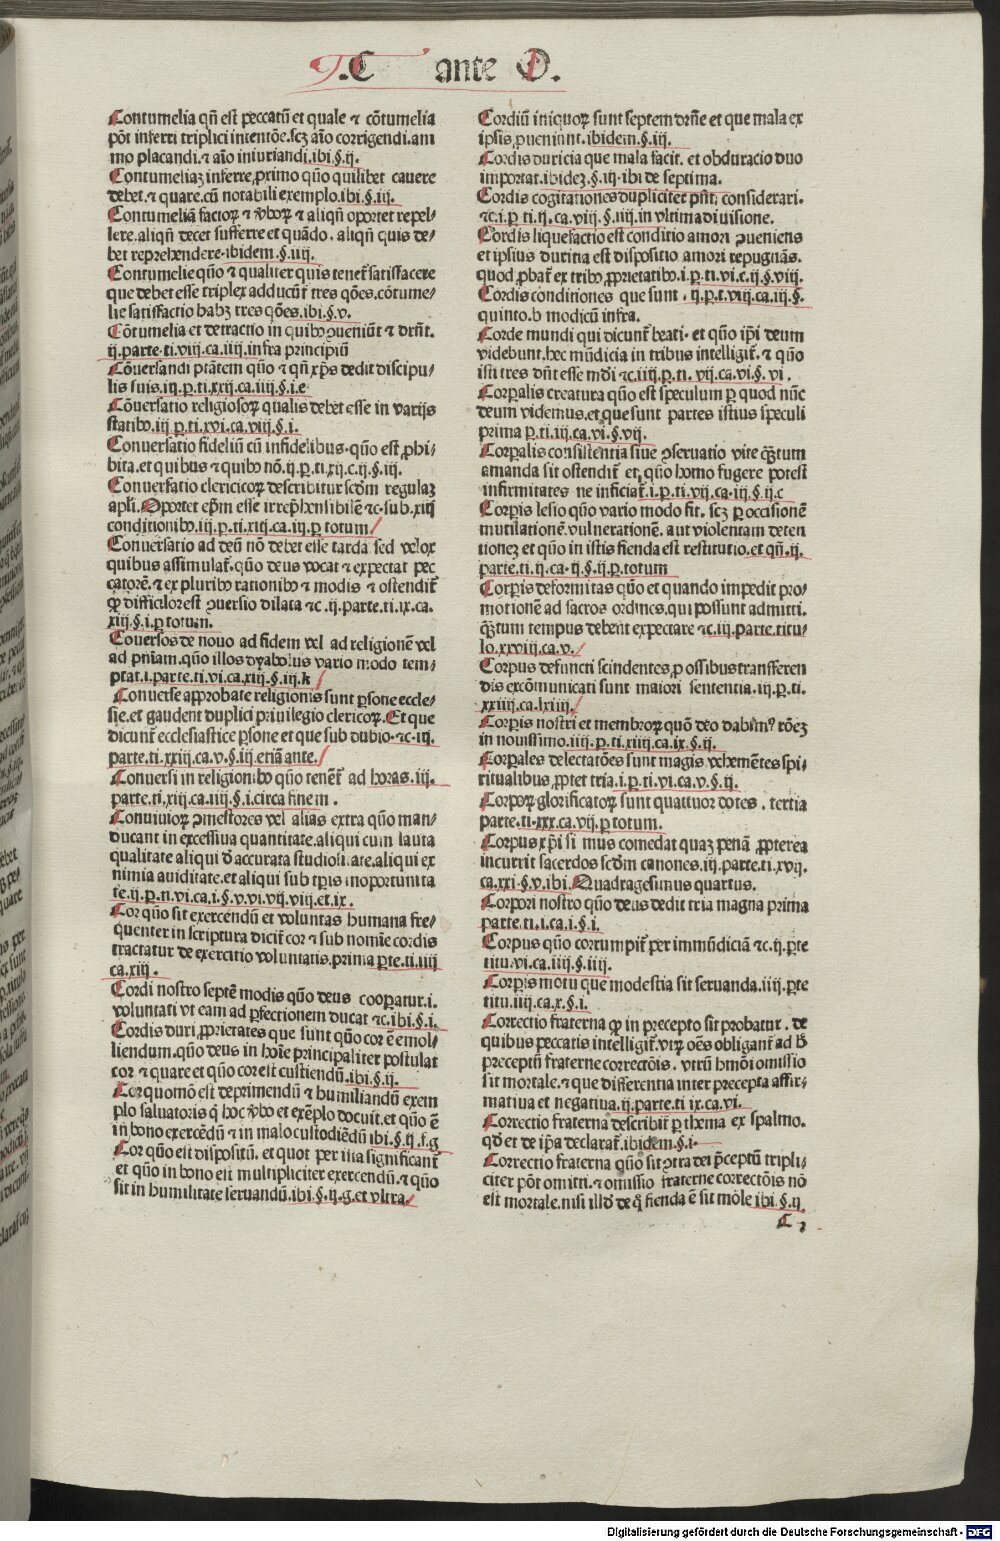 .C ante D.
Contumelia qñ est peccatū et quale ⁊ cōtumelia
pōt inferri triplici intentōe.scʒ aīo corrigendi.ani
mo placandi.⁊ aīo iniuriandi.ibi.§.ij.
Contumeliaʒ inferre,primo quō quilibet cauere
debet.⁊ quare.cū notabili exemplo.ibi.§.iij.
Contumeliā factoꝝ ⁊ v̓boꝝ ⁊ aliqñ oportet repel⸗
lere.aliqñ decet sufferre et quādo. aliqñ quis de⸗
bet reprehendere.ibidem.§.iiij.
Contumelie quō ⁊ qualiter quis tenet̄ satisfacere
que debet esse triplex adducūt̄ tres qōes.cōtume⸗
lie satisfactio habʒ tres qōes.ibi.§.v.
Cōtumelia et detractio in quibꝰ ꝯueniūt ⁊ drñt.
ij.parte.ti.viij.ca.iiij.infra principiū
Cōuersandi ptātem quō ⁊ qñ xp̄s dedit discipu⸗
lis suis.iij.p.ti.xxij.ca.iiij.§.i.e
Cōuersatio religiosoꝝ qualis debet esse in varijs
statibꝰ.iij p.ti.xvi.ca.viij.§.i.
Conuersatio fideliū cū infidelibus.quō est ꝓhi⸗
bita.et quibus ⁊ quibꝰ nō.ij.p.ti.xij.c.ij.§.iij.
Conuersatio clericicoꝝ describitur scd̄m regulaʒ
apl̄i.Oportet ep̄m esse irrep̄hensibilē ⁊c.sub.xiij
conditionibꝰ.iij.p.ti.xiij.ca.iij.p totum
Conuersatio ad deū nō debet esse tarda sed velox
quibus assimulat̄.quō deus vocat ⁊ expectat pec
catorē.⁊ ex pluribꝰ rationibꝰ ⁊ modis ⁊ ostendit̄
ꝙ difficilor est ꝯuersio dilata ⁊c.ij.parte.ti.ix.ca.
xiij.§.i.p totum.
Couersos de nouo ad fidem vel ad religionē vel
ad pn̄iam.quō illos dyabolus vario modo tem⸗
ptat.i.parte.ti.vi.ca.xiij.§.iij.k
Conuerse approbate religionis sunt p̱sone eccle⸗
sie.et gaudent duplici priuilegio clericoꝝ.Et que
dicunt̄ ecclesiastice p̱sone et que sub dubio.⁊c.iij.
parte.ti.xxiij.ca.v.§.iij etiā ante.
Conuersi in religionibꝰ quō tenēt̄ ad horas.iij.
parte.ti.xiij.ca.iiij.§.i.circa finem.
Conuiuioꝝ ꝯmestores vel alias extra quō man⸗
ducant in excessiua quantitate.aliqui cum lauta
qualitate aliqui d̓ accurata studiosi.ate.aliqui ex
nimia auiditate.et aliqui sub tp̄is inoportunita
te.ij.p.ti.vi.ca.i.§.v.vi.vij.viij.et.ix.
Cor quō sit exercendū et voluntas humana fre⸗
quenter in scriptura dicit̄ cor ⁊ sub nomīe cordis
tractatur de exercitio voluntatis.prima p̱te.ti.iiij
ca.xiij.
Cordi nostro septē modis quō deus cooꝑatur.i.
voluntati vt eam ad ꝑfectionem ducat ⁊c.ibi.§.i.
Cordis duri ꝓprietates que sunt quō cor ē emol⸗
liendum.quō deus in hoīe principaliter postulat
cor ⁊ quare et quō cor est custiendū.ibi.§.ij.
Cor quomō est deprimendū ⁊ humiliandū exem
plo saluatoris q̄ hoc v̓bo et exēplo docuit.et quō ē
in bono exercēdū ⁊ in malo custodiēdū ibi.§.ij.f.g
Cor quō est dispositū. et quot per ista significant̄
et quō in bono est multipliciter exercendū.⁊ quō
sit in humilitate seruandū.ibi.§.ij.g.et vltra.
Cordiū iniquoꝝ sunt septem drn̄e et que mala ex
ipsis ꝓueniunt.ibidem.§.iij.
Cordis duricia que mala facit. et obduracio duo
importat.ibideʒ.§.iij.ibi de septima.
Cordis cogitationes dupliciter pn̄t considerari.
⁊c.i.p ti.ij.ca.viij.§.iiij.in vltima diuisione.
Cordis liquefactio est conditio amori ꝯueniens
et ipsius duritia est dispositio amori repugnās.
quod ꝓbat̄ ex tribꝰ ꝓprietatibꝰ.i.p.ti.vi.c.ij.§.viij.
Cordis conditiones que sunt.ij.p.t.viij.ca.iij.§.
quinto.b modicū infra.
Corde mundi qui dicunt̄ beati.et quō ip̄i deum
videbunt.hec mūdicia in tribus intelligit̄.⁊ quō
isti tres dn̄t esse mūdi ⁊c.iiij.p.ti.vij.ca.vi.§.vi.
Corp̱alis creatura quō est speculum p̱ quod nūc
deum videmus.et que sunt partes istius speculi
prima p.ti.iij.ca.vi.§.vij.
Corp̱alis consistentia siue ꝯseruatio vite q̄ntum
amanda sit ostendit̄ et quō homo fugere potest
infirmitates ne inficiat̄.i.p.ti.vij.ca.iij.§.ij.c
Corp̱is lesio quō vario modo fit.scʒ p̱ occisionē
mutilationē.vulnerationē.aut violentam deten
tioneʒ et quō in istis fienda est restitutio.et qñ.ij.
parte.ti.ij.ca.ij.§.ij.p.totum
Corp̱is deformitas quō et quando impedit pro⸗
motionē ad sacros ordines.qui possunt admitti.
q̄ntum tempus debent expectare ⁊c.iij.parte.titu⸗
lo.xxviij.ca.v.
Corpus defuncti scindentes ꝓ ossibus transferen
dis excōmunicati sunt maiori sententia.iij.p.ti.
xxiiij.ca.lxiiij.
Corp̱is nostri et membroꝝ quō deo dabimꝰ rōeʒ
in nouissimo.iiij.p.ti.xiiij.ca.ix.§.ij.
Corp̱ales delectatōes sunt magis vehemētes spi⸗
ritualibus ꝓpter tria.i.p.ti.vi.ca.v.§.ij.
Corpoꝝ glorificatoꝝ sunt quattuor dotes. tertia
parte.ti.xxx.ca.vij.p totum.
Corpus xp̄i si mus comedat quaʒ penā ꝓpterea
incurrit sacerdos scd̄m canones.iij.parte.ti.xvij.
ca.xxi.§.v.ibi.Quadragesimus quartus.
Corpori nostro quō deus dedit tria magna prima
parte.ti.i.ca.i.§.i.
Corpus quō corrumpit̄ per immūdiciā ⁊c.ij.p̱te
titu.vi.ca.iiij.§.iiij.
Corp̱is motu que modestia sit seruanda.iiij.p̱te
titu.iiij.ca.x.§.i.
Correctio fraterna ꝙ in precepto sit probatur. de
quibus peccatis intelligit̄.vtꝝ oēs obligant̄ ad h̓
preceptū fraterne correctōis. vtrū hmōi omissio
sit mortale.⁊ que differentia inter precepta affir⸗
matiua et negatiua.ij.parte.ti ix.ca.vi.
Correctio fraterna describit̄ p̱ thema ex spalmo.
qd̓ et de ip̄a declarat̄.ibidem.§.i.
Correctio fraterna quō sit ꝯtra dei p̄ceptū tripli⸗
citer pōt omitti.⁊ omissio fraterne correctōis nō
est mortale.nisi illd̓ de q̄ fienda ē sit mōle ibi.§.ij.
C 2
Digitalisierung gefördert durch die Deutsche Forschungsgemeinschaft - DFG